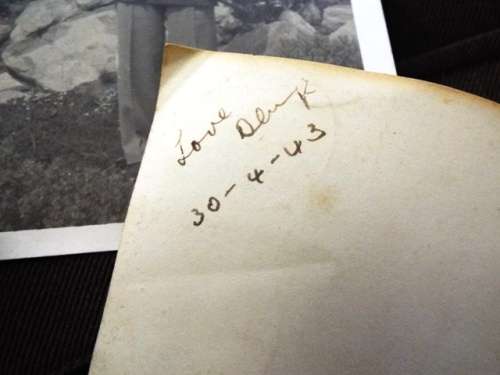 Love
30-4-43